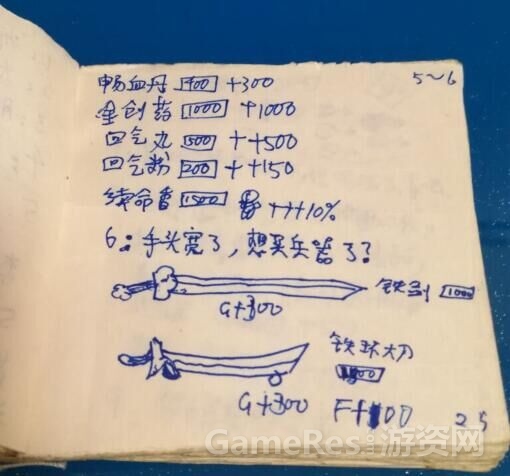 5~6
畅血丹 400 +300
金创药 1000 +1000
回气丸 500 ++500
回气粉 200 ++150
续命香 1500 +++10%
6：手头宽了，想买兵器了？
铁剑 1000
G+300
铁环大刀
G+300 F+100
25
GameRes游资网